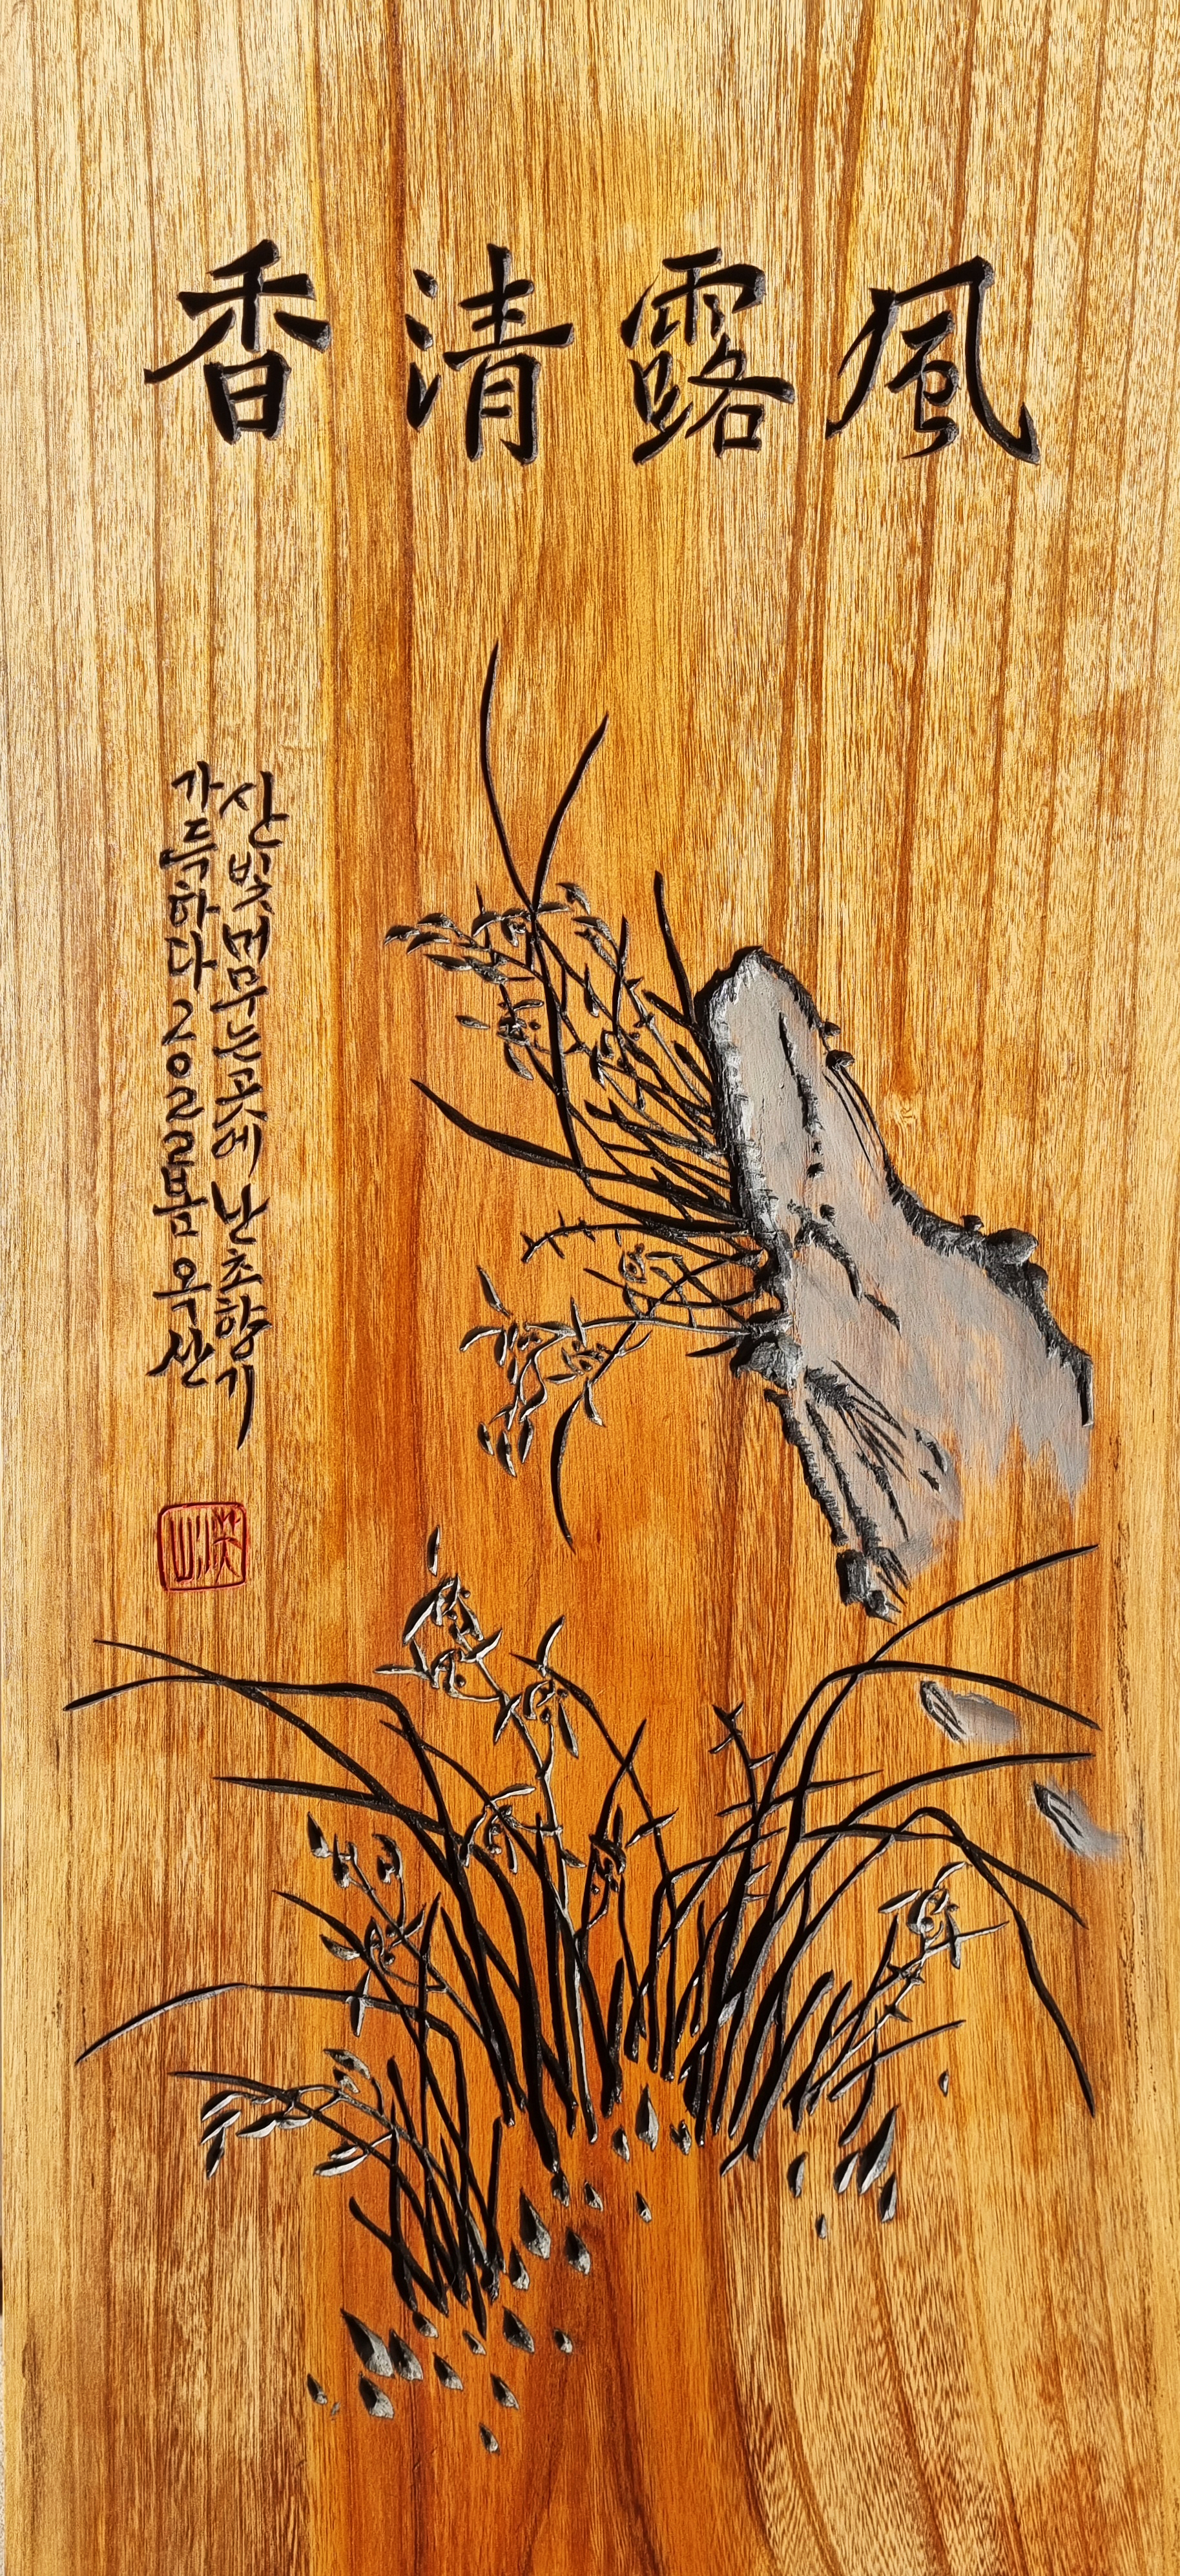 風露清香
산빛 머무는 곳에 난초향기
가득하다 2022 봄 옥산